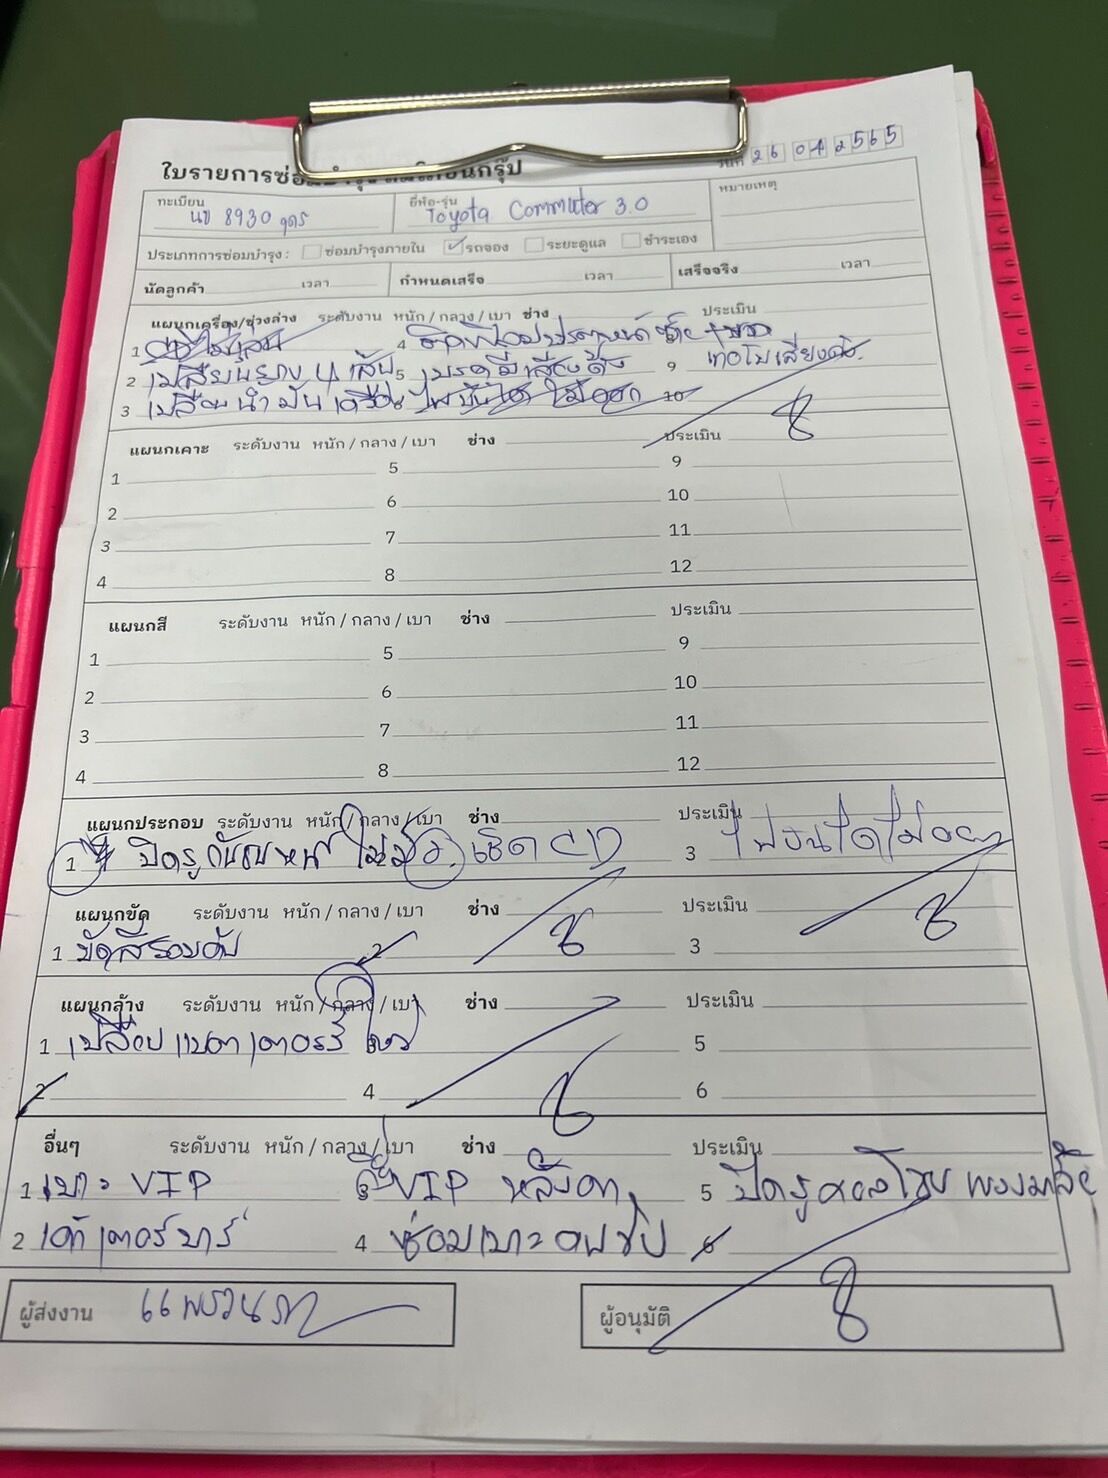 ใบรายการซ่อมบำรุง
วันที่ 26 04 2565
ทะเบียน นข 8930 อุดร ยี่ห้อ-รุ่น Toyota Commuter 3.0 หมายเหตุ
ประเภทการซ่อมบำรุง : ซ่อมบำรุงภายใน ✓ รถจอง ระยะดูแล ชำระเอง
นัดลูกค้า เวลา กำหนดเสร็จ เวลา เสร็จจริง เวลา
แผนกเครื่อง/ช่วงล่าง ระดับงาน หนัก / กลาง / เบา ช่าง ประเมิน
1 4
2 เปลี่ยนยาง 4 เส้น 5 เบรคมีเสียงดัง 9 เทอโบเสียงดัง
3 เปลี่ยนน้ำมันเครื่อง 10
แผนกเคาะ ระดับงาน หนัก / กลาง / เบา ช่าง ประเมิน
1 5 9
2 6 10
3 7 11
4 8 12
แผนกสี ระดับงาน หนัก / กลาง / เบา ช่าง ประเมิน
1 5 9
2 6 10
3 7 11
4 8 12
แผนกประกอบ ระดับงาน หนัก / กลาง / เบา ช่าง ประเมิน
1 ปิดรูกันชนหน้า เช็ค CD 3
แผนกขัด ระดับงาน หนัก / กลาง / เบา ช่าง ประเมิน
1 ขัดสีรอบคัน 2 3
แผนกล้าง ระดับงาน หนัก / กลาง / เบา ช่าง ประเมิน
1 เปลี่ยนแบตเตอรรี่ 5
2 4 6
อื่นๆ ระดับงาน หนัก / กลาง / เบา ช่าง ประเมิน
1 เบาะ VIP 3 VIP หลังคา 5 ปิดรู
2 เค้าเตอร์บาร์ 4 ซ่อมเบาะ 6
ผู้ส่งงาน ผู้อนุมัติ